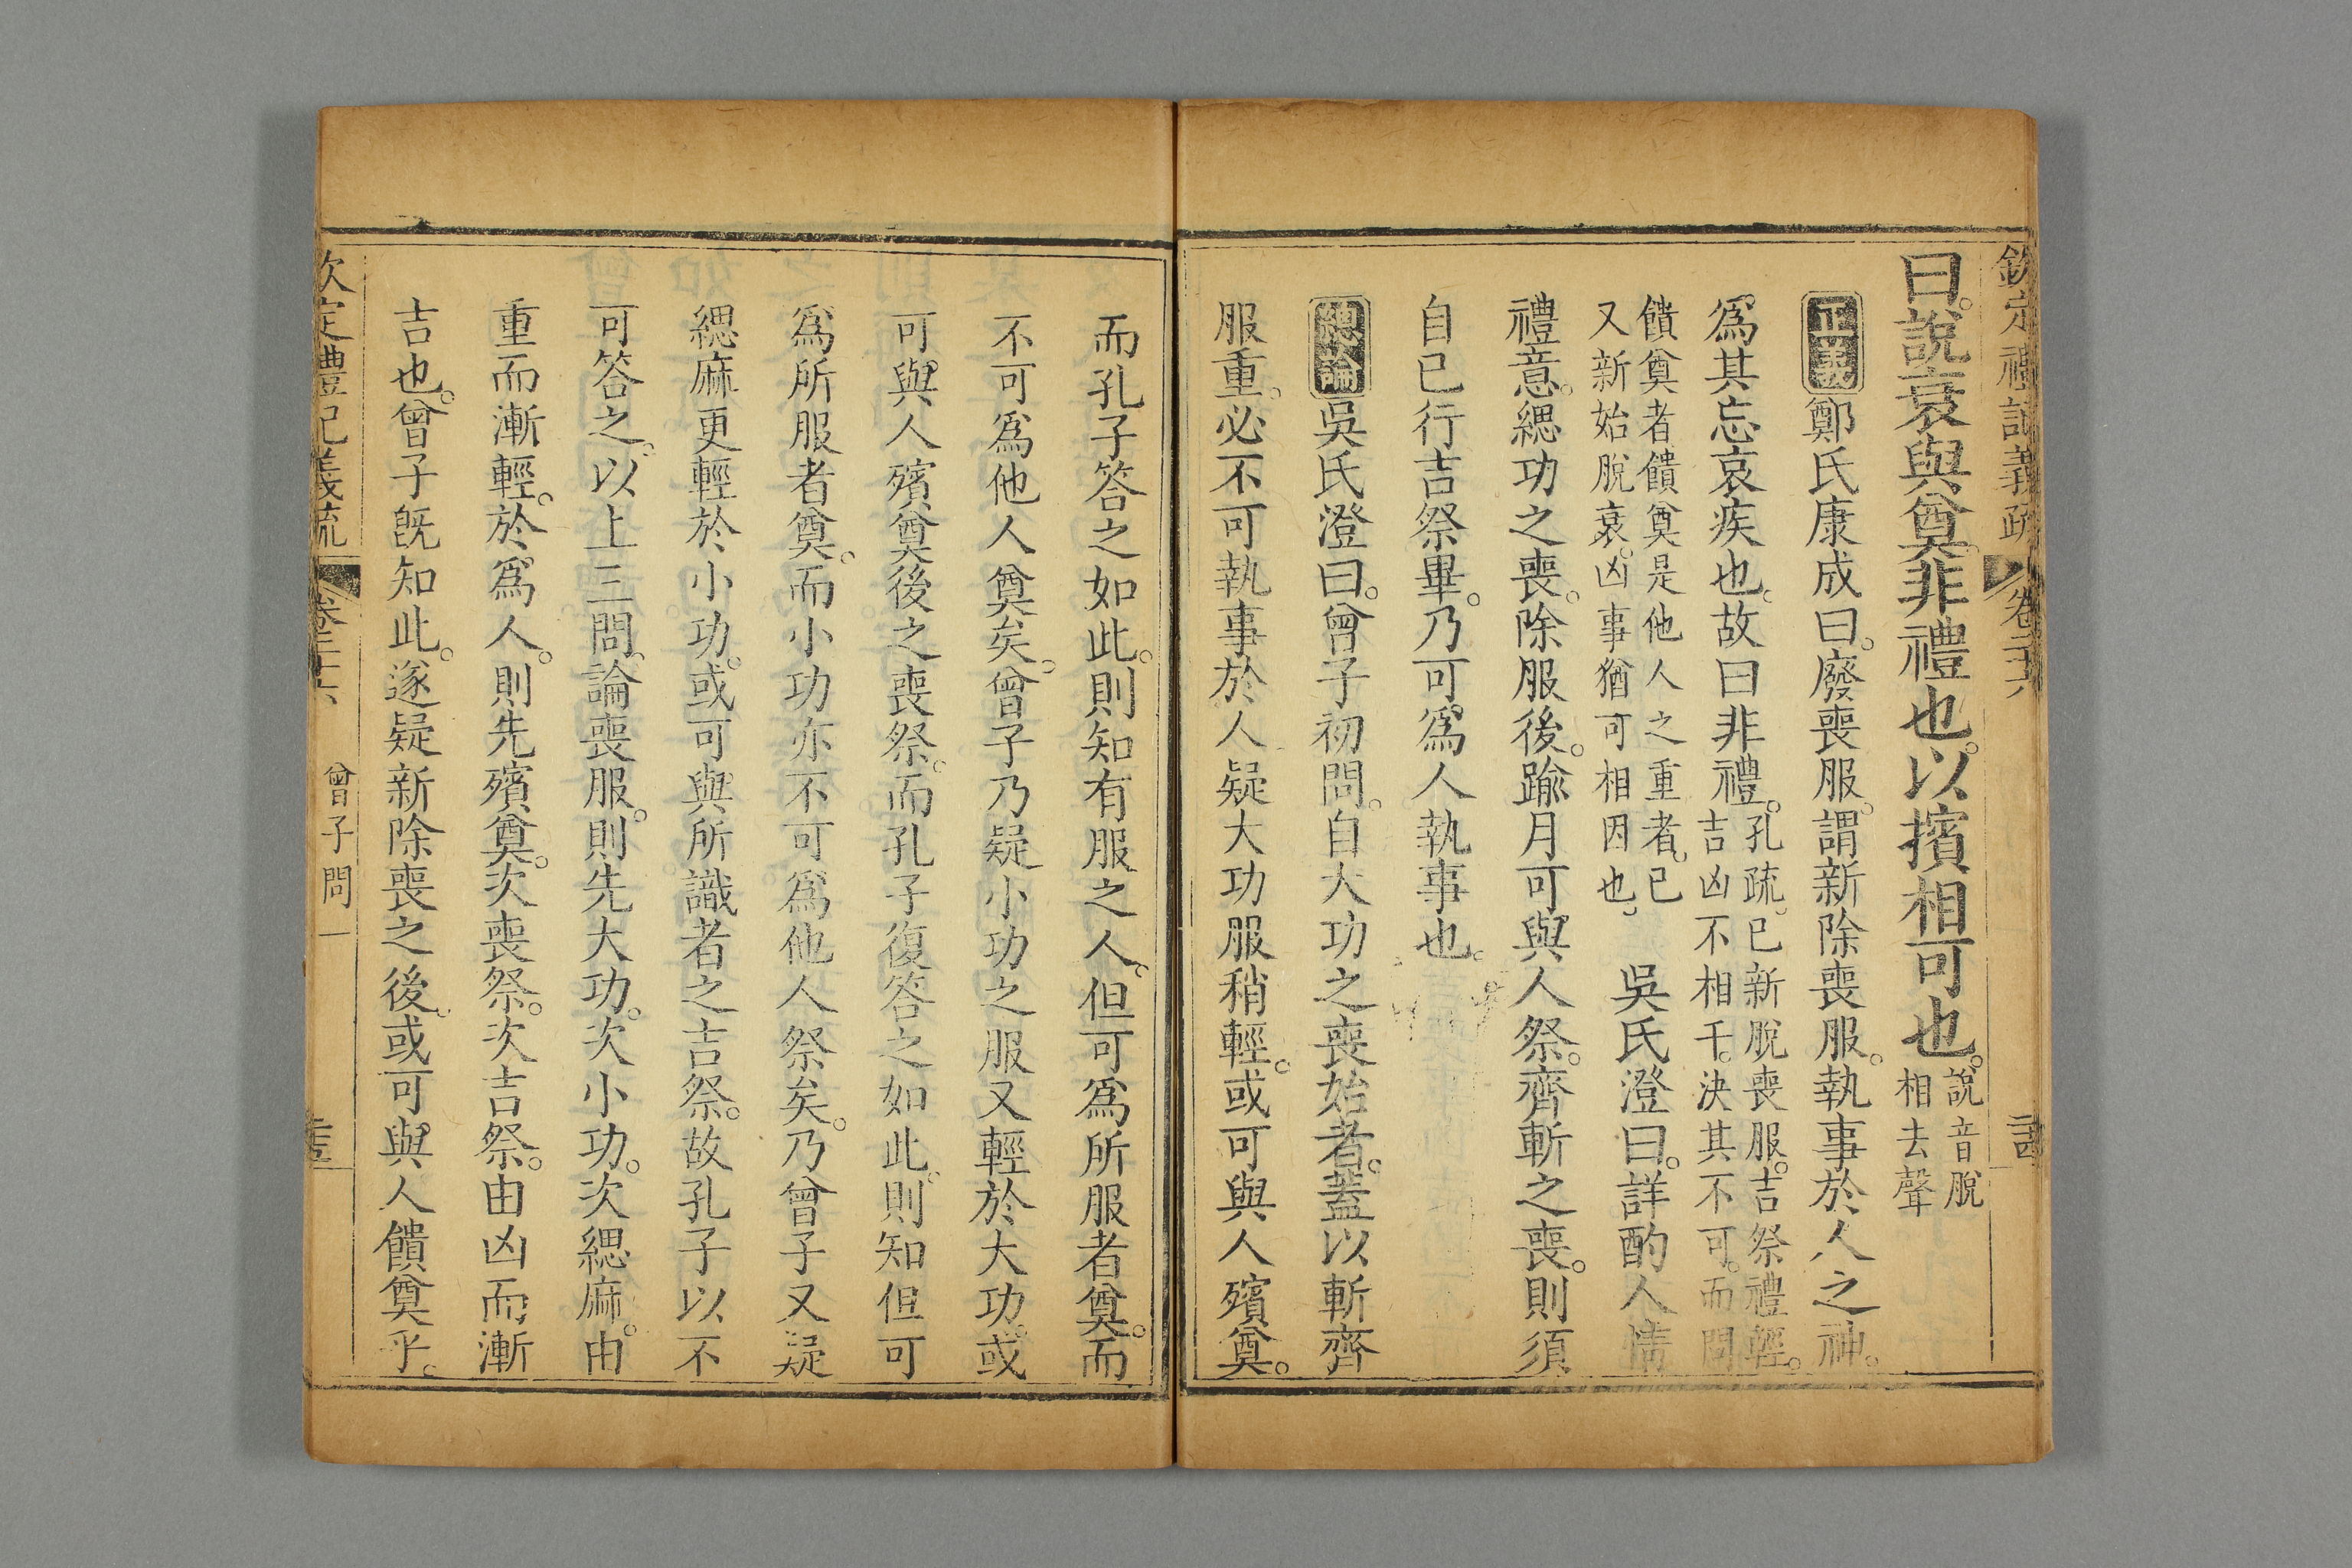 欽定禮記義疏 卷二十六 二十四
曰。說衰與奠。非禮也。以擯相可也。說音脫相去聲
正義 鄭氏康成曰。廢喪服。謂新除喪服。執事於人之神。
爲其忘哀疾也。故曰非禮。孔疏。已新脫喪服。吉祭禮輕。吉凶不相干。決其不可。而問
饋奠者。饋奠是他人之重者。已又新始脫衰。凶事猶可相因也。 吳氏澄曰。詳酌人情
禮意。緦功之喪。除服後。踰月可與人祭。齊斬之喪。則須
自已行吉祭畢。乃可爲人執事也。
總論 吳氏澄曰。曾子初問。自大功之喪始者。蓋以斬齊
服重。必不可執事於人。疑大功服稍輕。或可與人殯奠。
而孔子答之如此。則知有服之人。但可爲所服者奠。而
不可爲他人奠矣。曾子乃疑小功之服又輕於大功。或
可與人殯奠後之喪祭。而孔子復答之如此。則知但可
爲所服者奠。而小功亦不可爲他人祭矣。乃曾子又疑
緦麻更輕於小功。或可與所識者之吉祭。故孔子以不
可答之。以上三問。論喪服。則先大功。次小功。次緦麻。由
重而漸輕。於爲人。則先殯奠。次喪祭。次吉祭。由凶而漸
吉也。曾子旣知此。遂疑新除喪之後。或可與人饋奠乎。
欽定禮記義疏 卷二十六 曾子問一 二十五